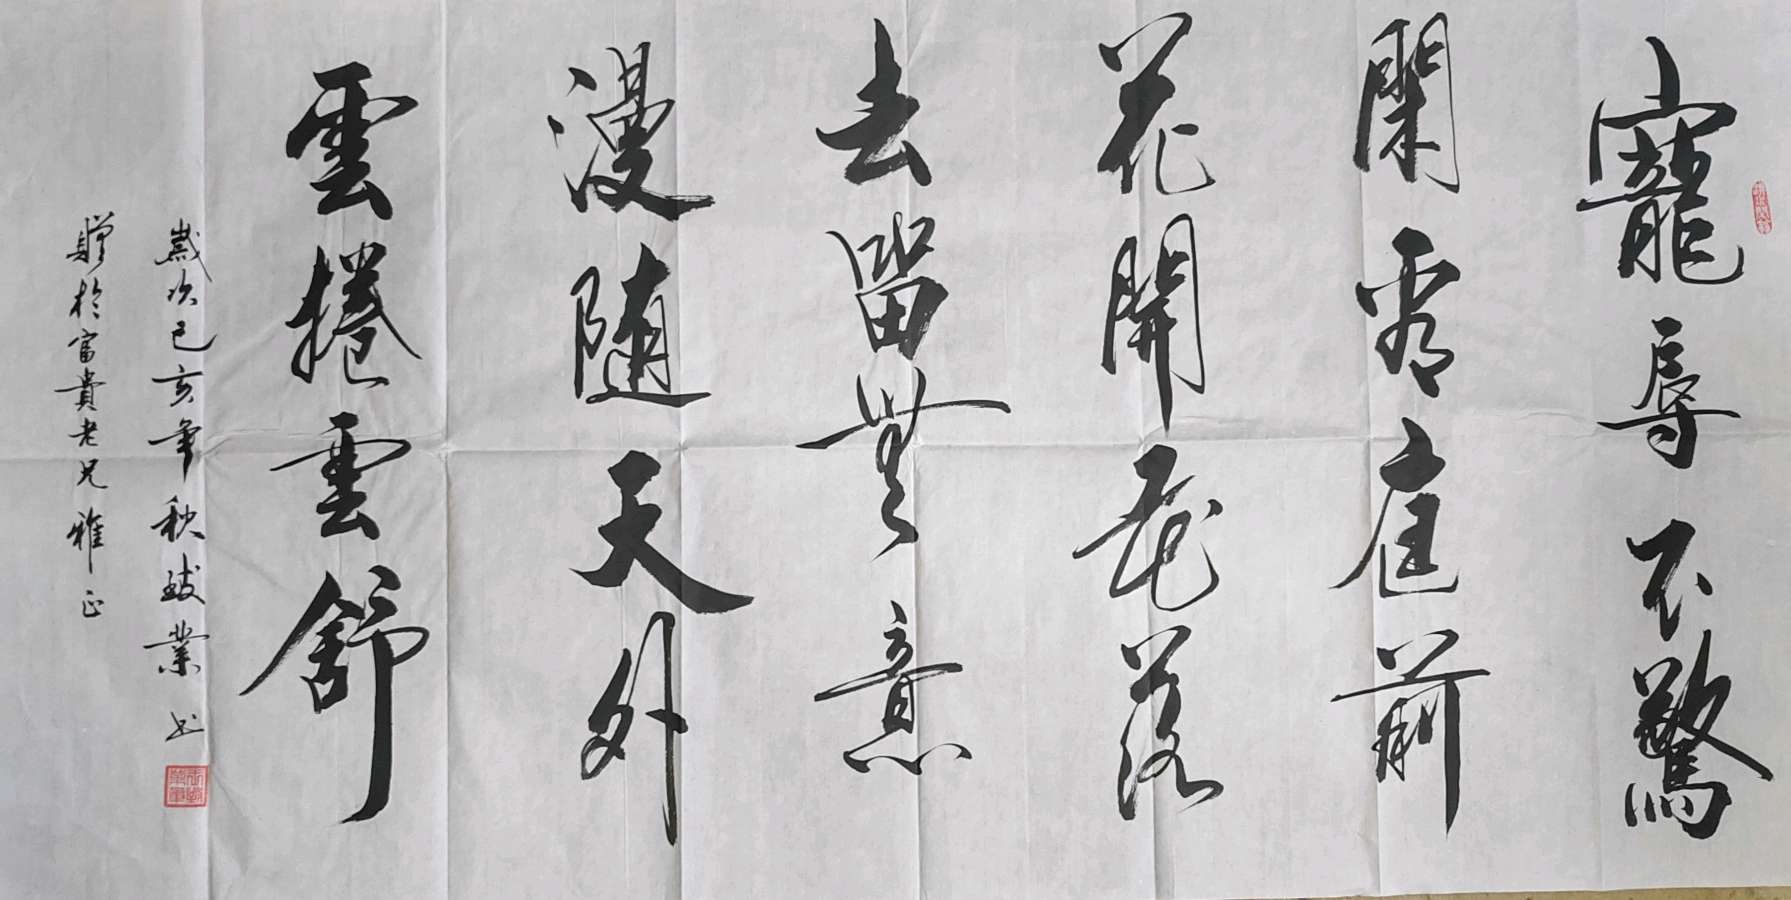 寵辱不驚
閑看庭前
花開花落
去留無意
漫随天外
雲捲雲舒
歲次己亥年秋玻業书
贈於富貴老兄雅正